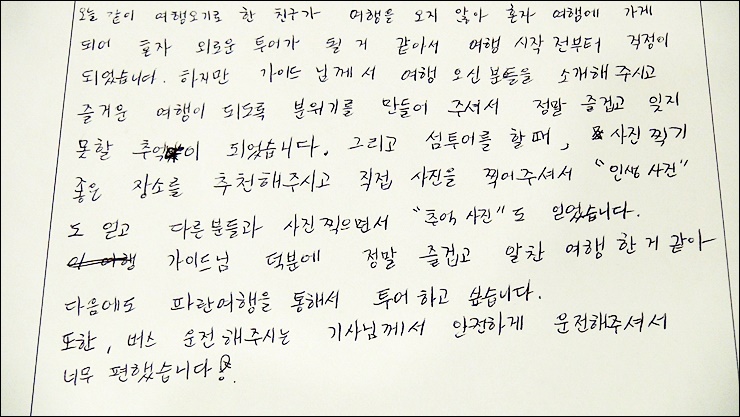 오늘 같이 여행오기로 한 친구가 여행을 오지 않아 혼자 여행에 가게
되어 혼자 외로운 투어가 될 거 같아서 여행 시작 전부터 걱정이
되었습니다. 하지만 가이드 님께서 여행 오신 분들을 소개해 주시고
즐거운 여행이 되도록 분위기를 만들어 주셔서 정말 즐겁고 잊지
못할 추억이 되었습니다. 그리고 섬투어를 할 때, 사진 찍기
좋은 장소를 추천해주시고 직접 사진을 찍어주셔서 "인생 사진"
도 얻고 다른 분들과 사진 찍으면서 "추억 사진"도 얻었습니다.
이 여행 가이드님 덕분에 정말 즐겁고 알찬 여행 한 거 같아
다음에도 파란여행을 통해서 투어 하고 싶습니다.
또한, 버스 운전해주시는 기사님께서 안전하게 운전해주셔서
너무 편했습니다!